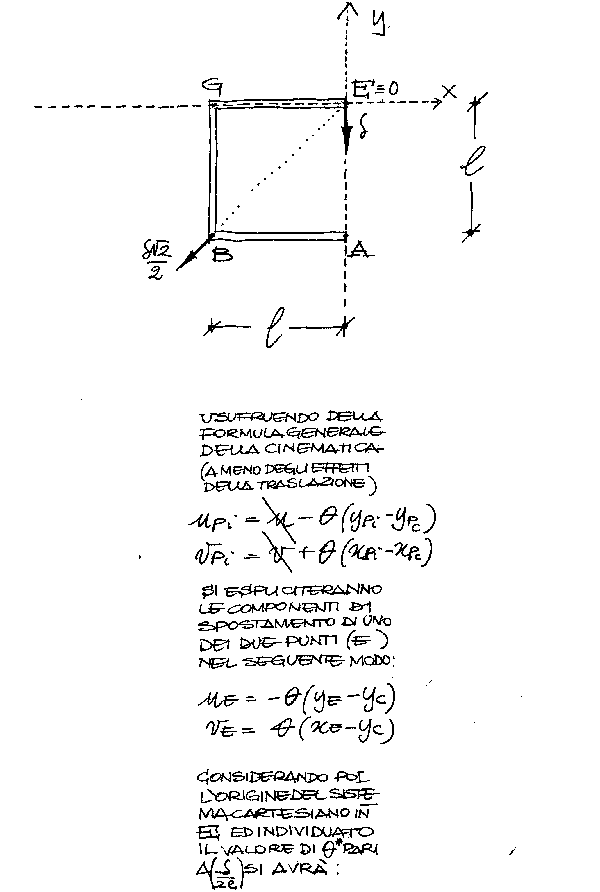 y
G
E≡0
x
δ
l
δ√2/2
B
A
l
USUFRUENDO DELLA
FORMULA GENERALE
DELLA CINEMATICA
(A MENO DEGLI EFFETTI
DELLA TRASLAZIONE)
uPi = u - θ(yPi - yPc)
vPi = v + θ(xPi - xPc)
SI ESPLICITERANNO
LE COMPONENTI DI
SPOSTAMENTO DI UNO
DEI DUE PUNTI (E)
NEL SEGUENTE MODO:
uE = -θ(yE - yC)
vE = θ(xE - yC)
CONSIDERANDO POI
L'ORIGINE DEL SISTE
MA CARTESIANO IN
E, ED INDIVIDUATO
IL VALORE DI θ* PARI
A(δ/2l) SI AVRÀ: